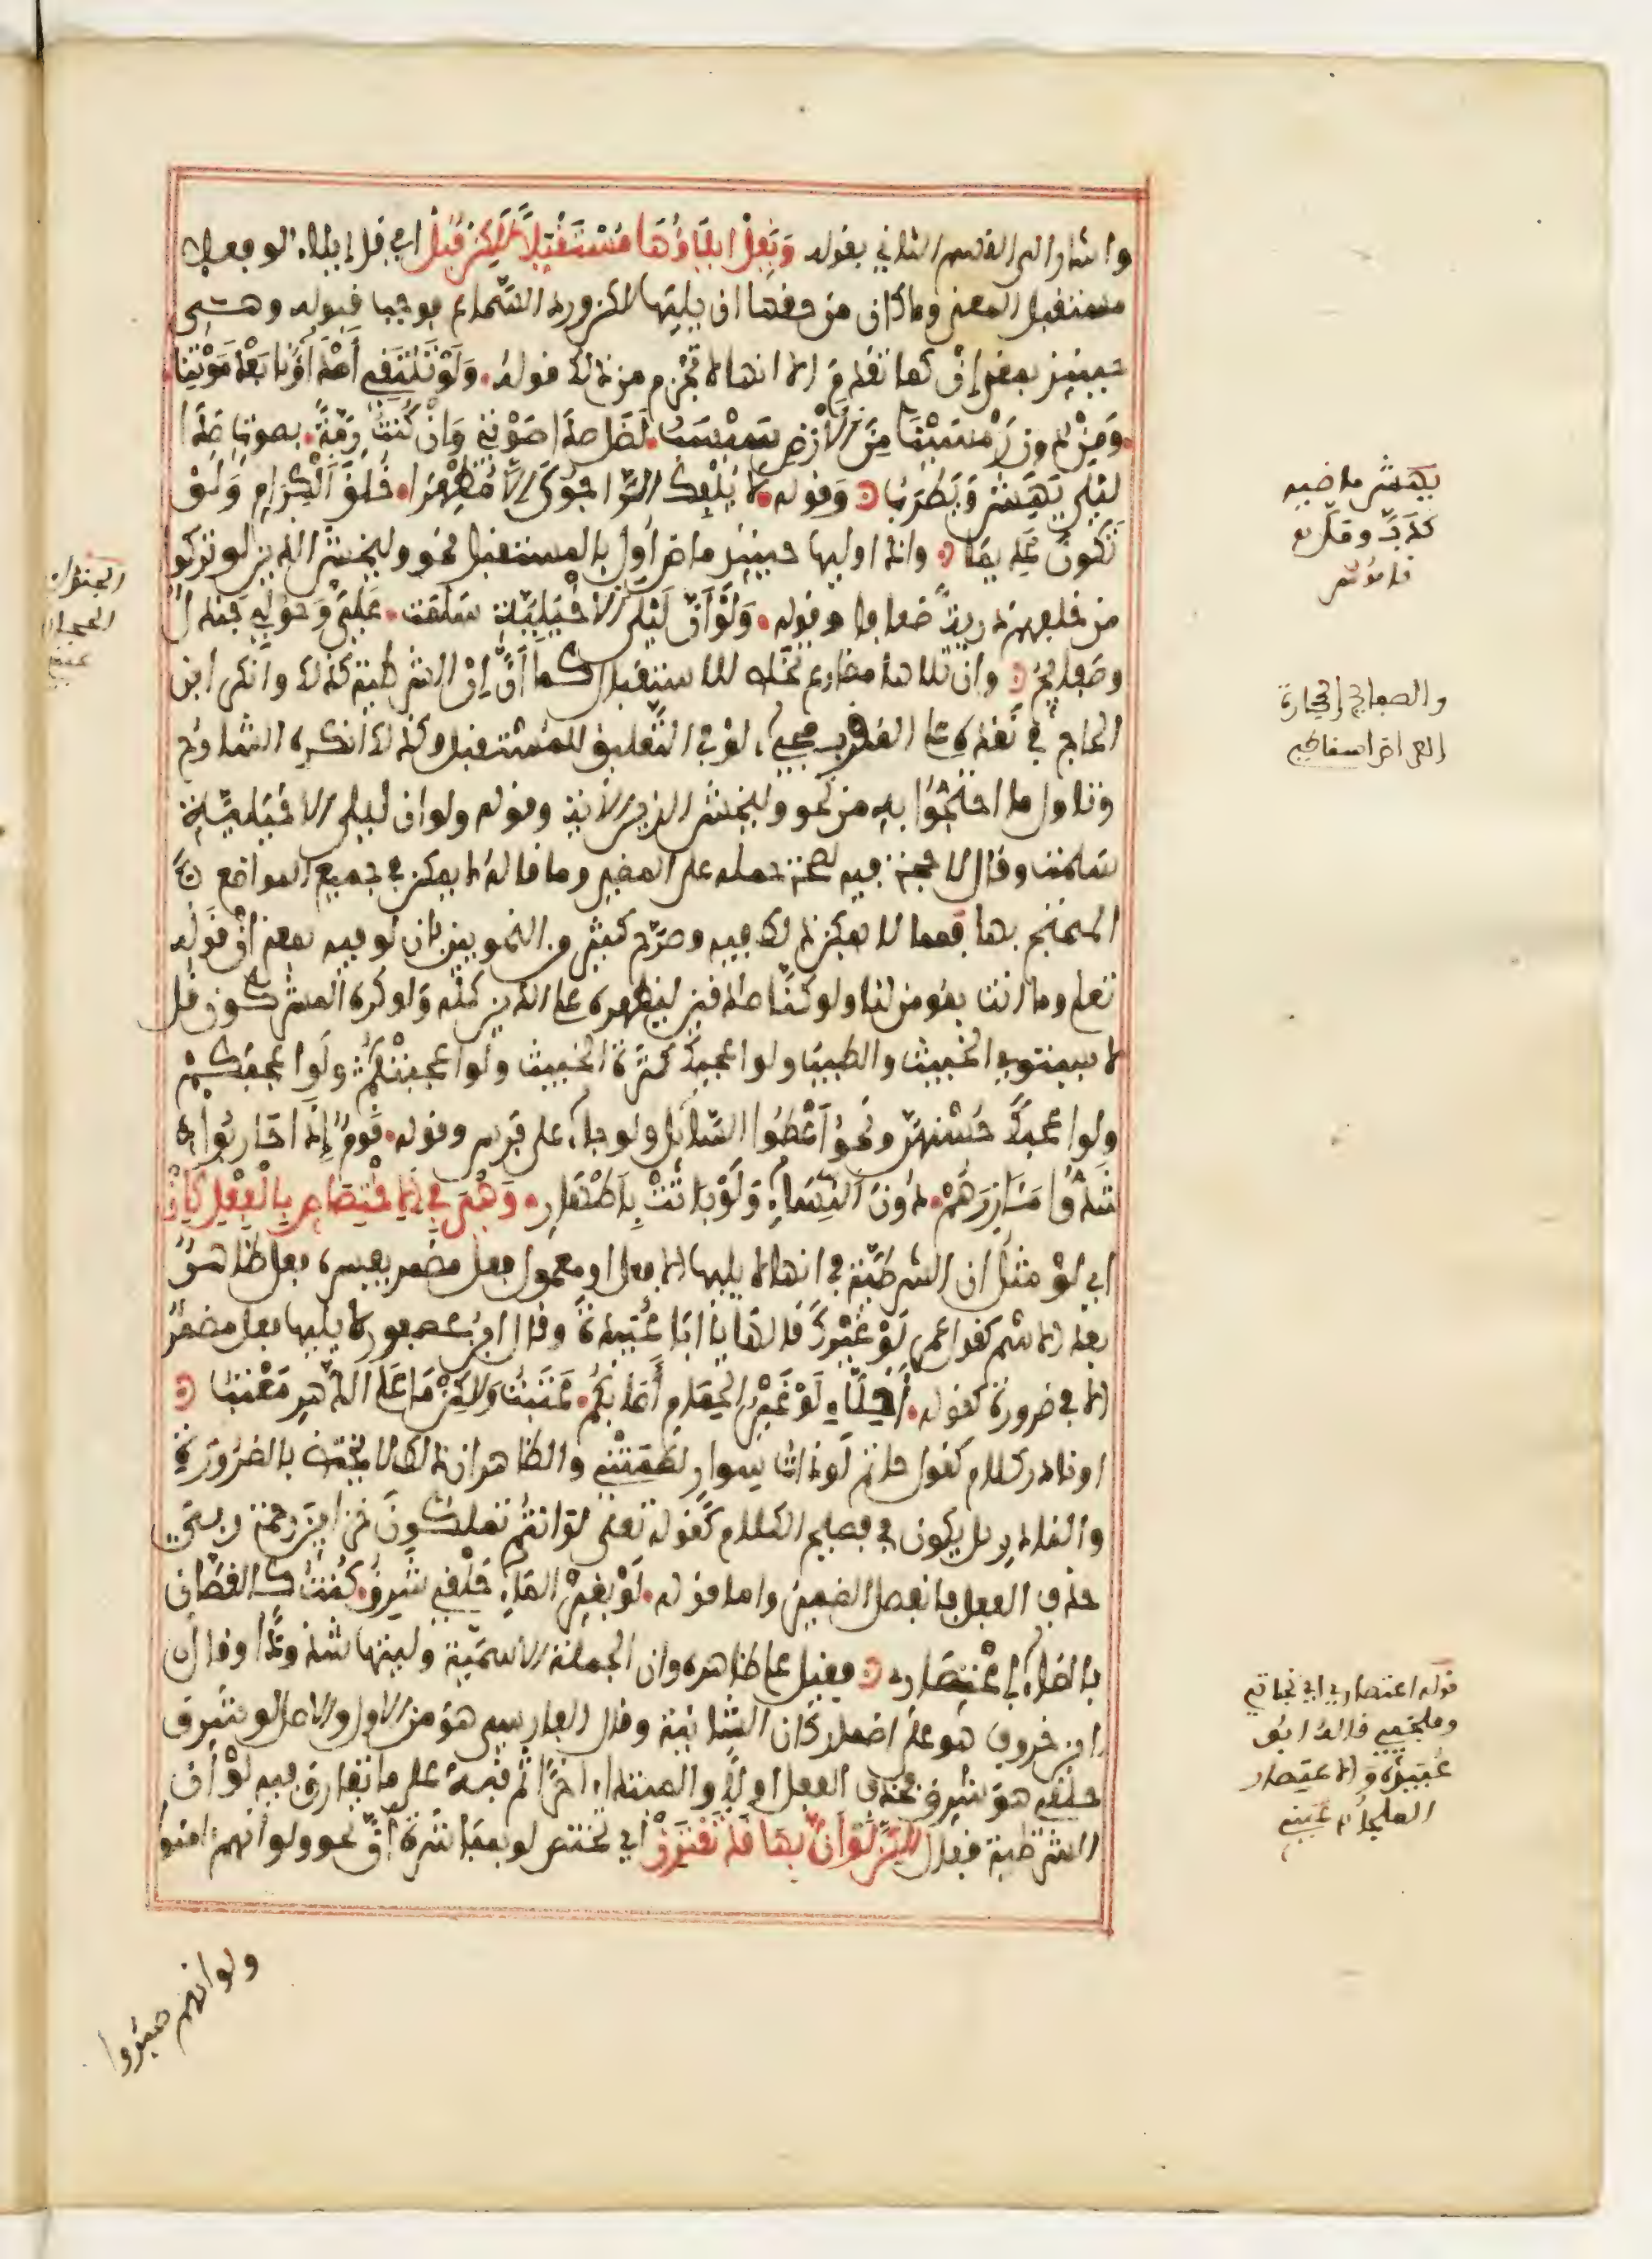 واشار الى القسم الثاني بقوله وَيَقِلّ ايلَاؤُهَا مُسْتَقْبَلاً لَكِنْ قُبِلْ اي قل إيلاء لو فعلا
مستقبل المعنى وما كان من حقها ان يليها لاكن ورد السّماع بوجب قبوله وهـي
حينئذ بمعنى إنْ كما تقدم الا انها لا تجزم من ذلك قوله وَلَوْ تَلْتَقِي أَصْدَاؤُنَا بَعْدَ مَوْتِنَا
وَمِنْ دون رَمْسَيْنَا مِنَ الأرْضِ سَبْسَبُ لَظَل صدَا صَوْتِي وَانْ كُنْتُ رِمَّةً بصوت صَدَا
ليلى يَهَشُّ وَيَطْرَبُ وَقوله لا يُلْفِكَ الرَّاجُوكَ الاَّ مُظْهِرًا خُلُقَ الْكِرَامِ وَلَوْ
تَكُونُ عَدِيمًا واذا وليها حينئذ ماض أول بالمستقبل نحو وليخش الذين لو تركوا
من خلفهم ذريةً ضعافا وقوله وَلَوْ أنَّ لَيْلَى الأخْيَلِيَّةَ سَلَّمَت عَلَيَّ وَدُونِي جَنْدَلٌ
وصَفايِحُ وان تلاها مضارع تخلص للاستقبال كما أنَّ إنْ الشرطية كذلك وانكر ابن
الحاج في نَقْدِه على المقرب مجيء لوْ في التَّعليق للمُسْتقبل وكذلك أنكره الشارح
وتاول ما احتجُّوا بِهِ من نحو وليخش الذين الآية وقوله ولو ان ليلى الاخيليَّةِ
سلمت وقال لا حجة فيه لصحة حمله على المضي وما قاله لا يمكن في جميع المواضع
المحتج بها فمما لا يمكن ذلك فيه وصرّح كثير من النحويين بان لو فيه بمعنى إنْ قوله
تعلى وما انت بمومن لنا ولو كنَّا صادقين ليظهره على الدين كله وَلو كره المشركون قل
لا يستوي الخبيث والطيب ولو اعجبك كثرة الخبيث ولو اعجبتْكُمْ ولَو اعجبَكمْ
ولو اعجبكَ حُسْنهنّ ونحو أعْطُوا السَّائِل ولو جاء على فرس وقوله قَومٌ إِذَا حَارَبُوا
شَدُّوا مَئَازِرَهُمْ دُونَ النِّسَاءِ وَلَوْ بَاتَتْ بِاَطْهَارِ وَهْيَ فِي الاِخْتِصَاصِ بِالْفِعْلِ كَاِنْ
اي لوْ مثلُ ان الشرطيَّة في انها لا يليها الا فعل او معمول فعل مضمر يفسره فعل ظاهرٌ
بعد الاسم كقول عمر لَوْ غَيْرُكَ قالهَا يَا ابَا عُبَيْدَةَ وقال ابن عصفور لا يليها فعل مضمرٌ
الا في ضرورة كقوله أخِلَّاءِ لَوْ غَيْرُ الحِمَامِ أَصَابَكُمْ عَتَبْتُ وَلاكِنْ مَا عَلى الدَّهْرِ مَعْتَبُ
او نادر كلام كقول حاتم لَو ذات سِوار لطَمَتْنِي والظاهر ان ذلك لا يختص بالضرُورَة
والنادر بل يكون في فصيح الكلام كقوله تعلى لوْ انتُم تملكونَ خزاين رحمة ربي
حذف الفعل فانفصل الضمير واما قوله لَوْ بِغَيْرِ المَاءِ حَلْقِي شَرِقٌ كُنْتُ كالغَصَّان
بالمَاءِ اعْتِصَارِي فقيل على ظاهره وان الجملة الاسميّة وليتها شذوذًا وقال
ابن خروف هُو على اضمار كان الشانية وقال الفارسي هو من الاول والاصل لو شرق
حلقي هوَ شرِقٌ فحذف الفعل اولاً والمبتدا اخرًا ثم نَبَّهَ على ما تفارق فيه لَوْ ان
الشرطية فقال لاكِنَّ لَوْ أنَّ بِهَا قَدْ تَقْتَرِنْ اي تختص لو بمباشرة أنَّ نحو ولو انهم امنوا
ولو انهم صبروا
يهش ماضيه
كدَبَّ وملّ
والصفايح الحجارة
العراض
قوله اعتصاري اي نجاتي
وملجئي قاله ابو
عُبَيْدَة والاعتصار
الملجأ